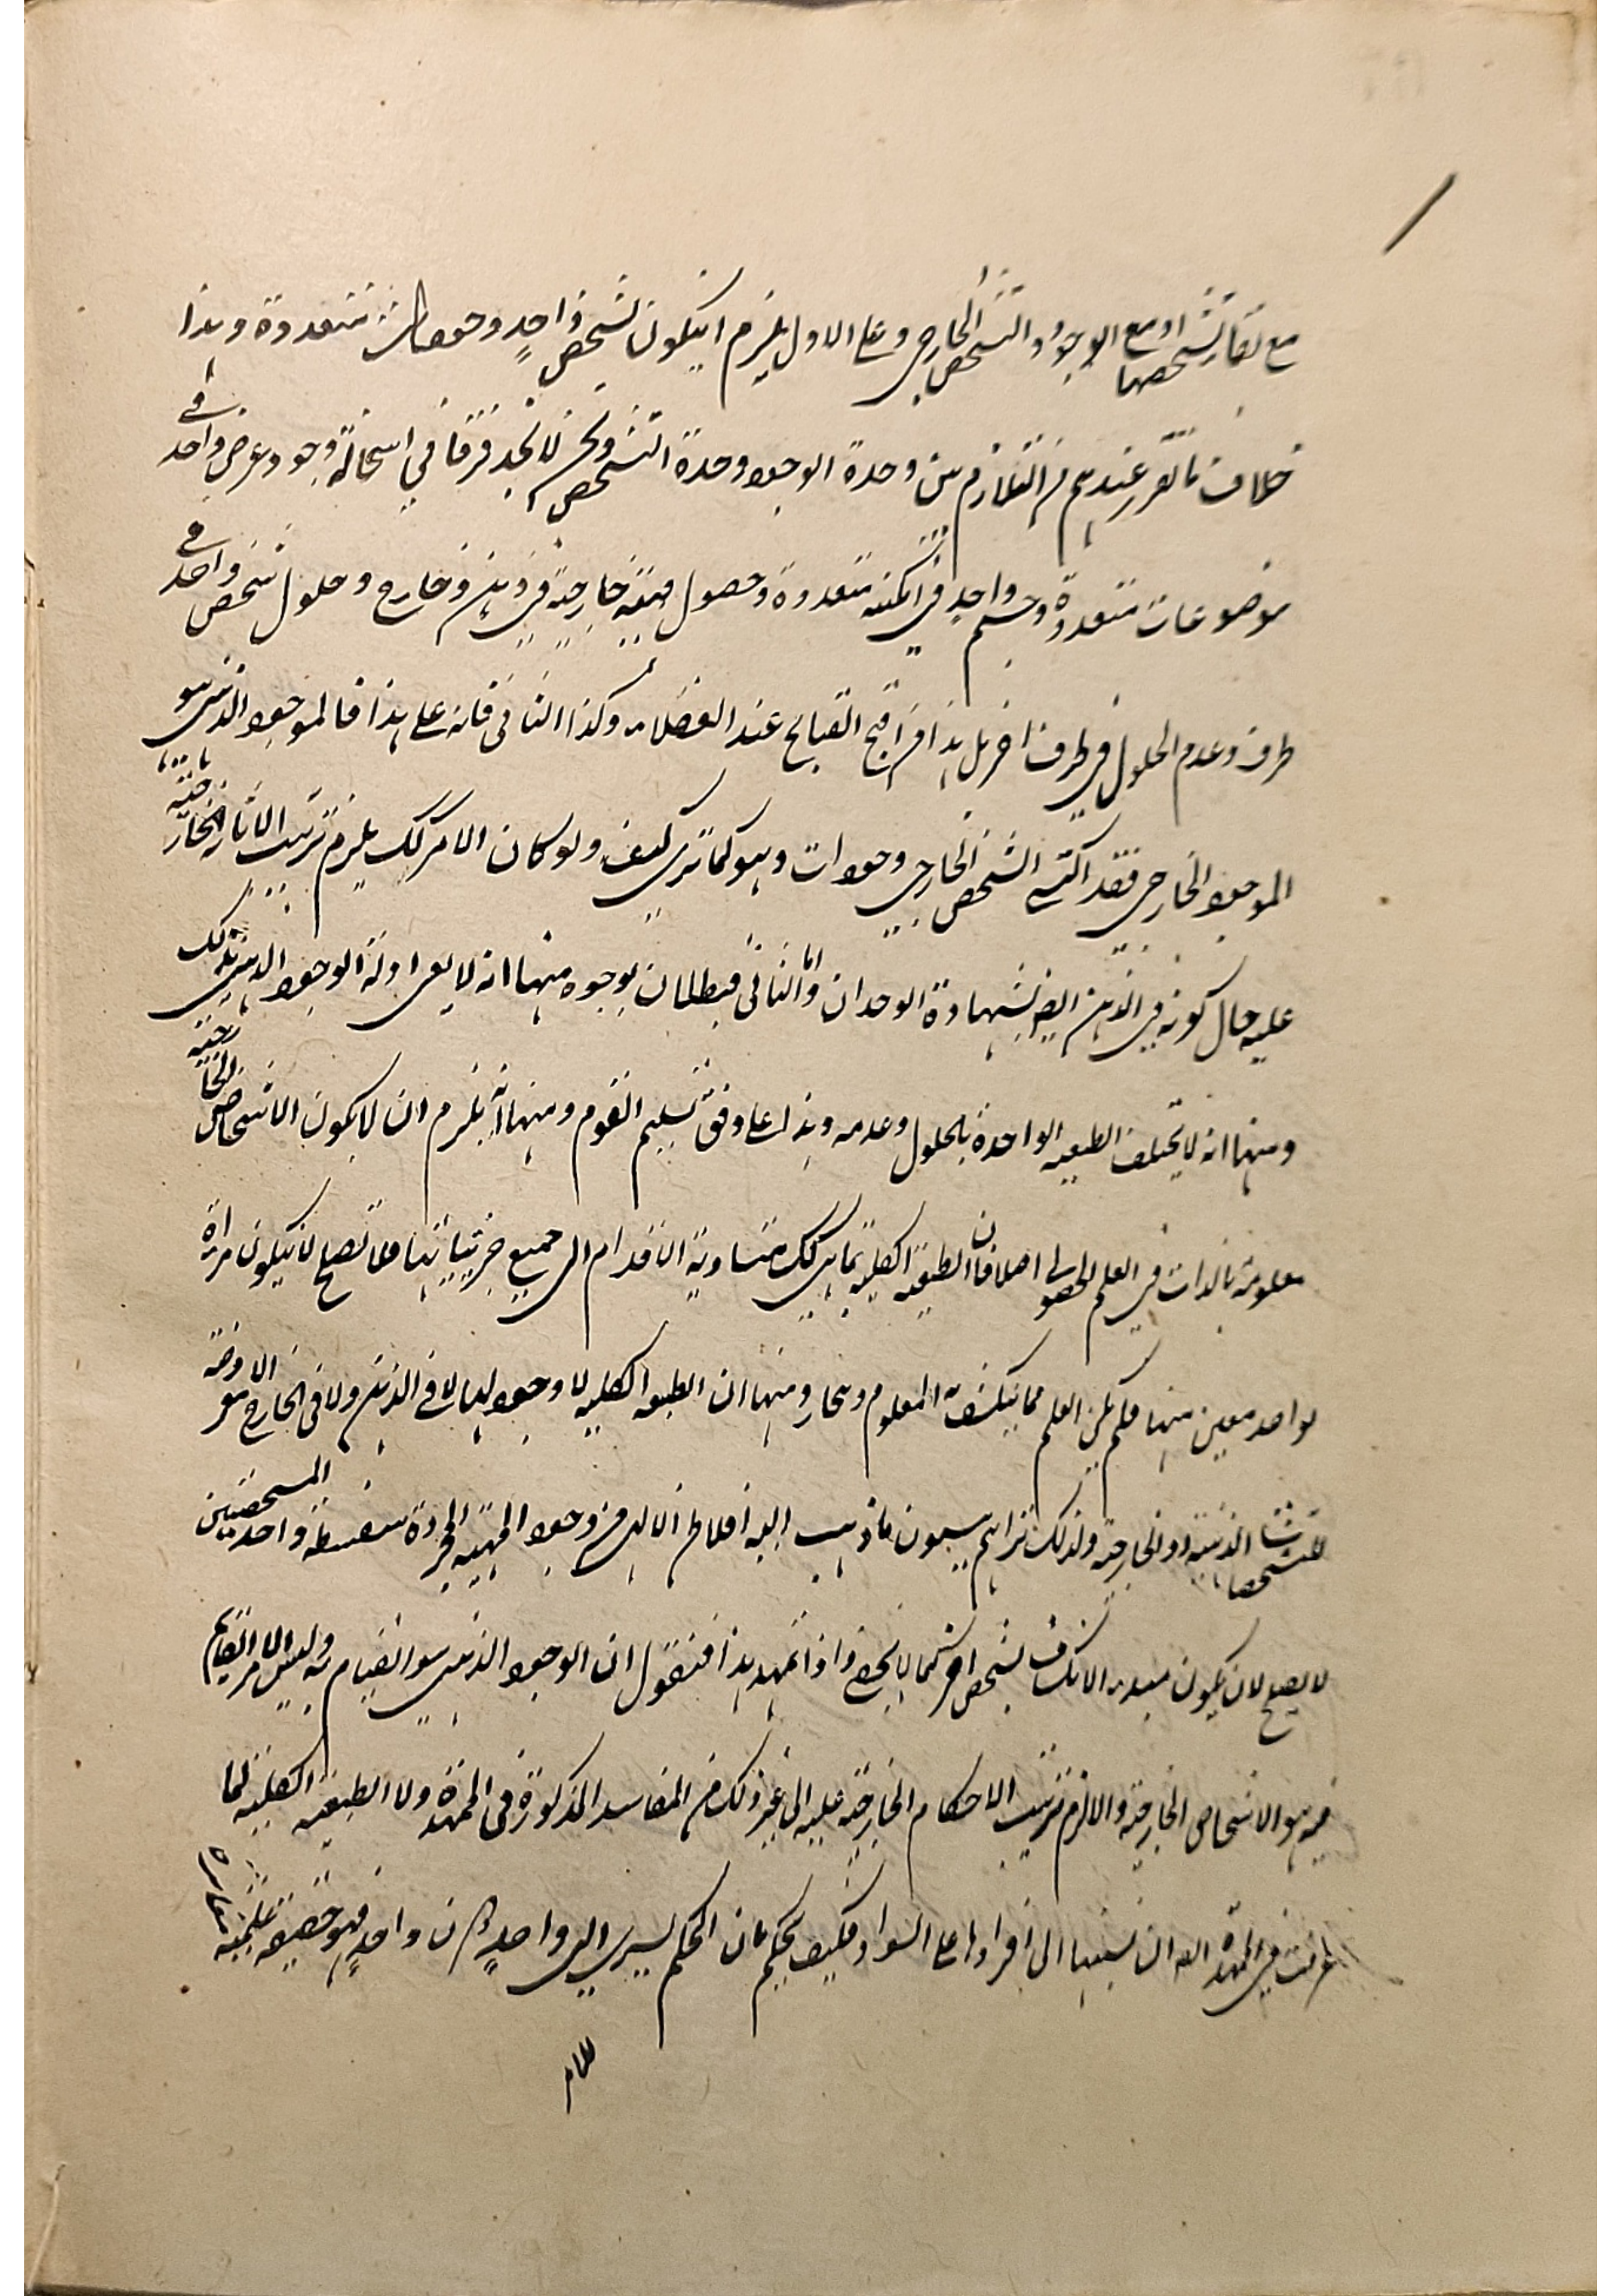 مع بقاء تشخصها او مع الوجود والتشخص الخارجي وعلى الاول يلزم ان يكون لشخص واحد وجودات متعددة وهذا
خلاف ما تقرر عندهم من التلازم بين وحدة الوجود وحدة التشخص ونحن لا نجد فرقا في استحالة وجود عرض واحد في
موضوعات متعددة وجسم واحد في امكنة متعددة وحصول خارجية في ذهن وخارج وحلول شخص واحد في
ظرف وعدم الحلول في ظرف اخر بل هذا من اقبح القبايح عند الفضلاء وكذا الثاني فانه على هذا فالموجود الذهني هو
الموجود الخارجي فقد التشخص الخارجي وجودات وهو كما ترى كيف ولو كان الامر كك يلزم ترتب الاثار الخارجية
عليه حال كونه في الذهن ايضا بشهادة الوجدان واما الثاني فبطلانه بوجوه منها انه لا ادلة الوجود الذهني بذلك
ومنها انه لا يختلف الطبيعة الواحدة بالحلول وعدمه وهذا على وفق تسليم القوم ومنها انه يلزم ان لا يكون الاشخاص الخارجية
معلومة بالذات في العلم الحصولي اصلا فان الطبيعة الكلية بما هي كك متساوية الاقدام الى جميع جزئياتها فلا تصلح لان يكون مراة
لواحد معين منها فلم يكن العلم مما ينكشف به المعلوم ومنها ان الطبيعة الكلية لا وجود لها لا في الذهن ولا في الخارج الا معروضة
للتشخصات الذهنية او الخارجية ولذلك تراهم يسمون ما ذهب اليه افلاطن الالهي من وجود المهية المجردة سفسطة واحد المتشخصين
لا يصلح لان يكون مبدء الانكشاف لشخص اخر كما لا يخفى واذا تمهد هذا فنقول ان الوجود الذهني هو القيام به وليس الامر القايم
به هو الاشخاص الخارجية والا لزم ترتب الاحكام الخارجية عليه الى غير ذلك من المفاسد المذكورة في الممهدة ولا الطبيعة الكلية لما
عرفت في الممهدة ان نسبتها الى افرادها على السواء فكيف يحكم بان الحكم يسري الى واحد دون واحد فهو حقيقة علمية